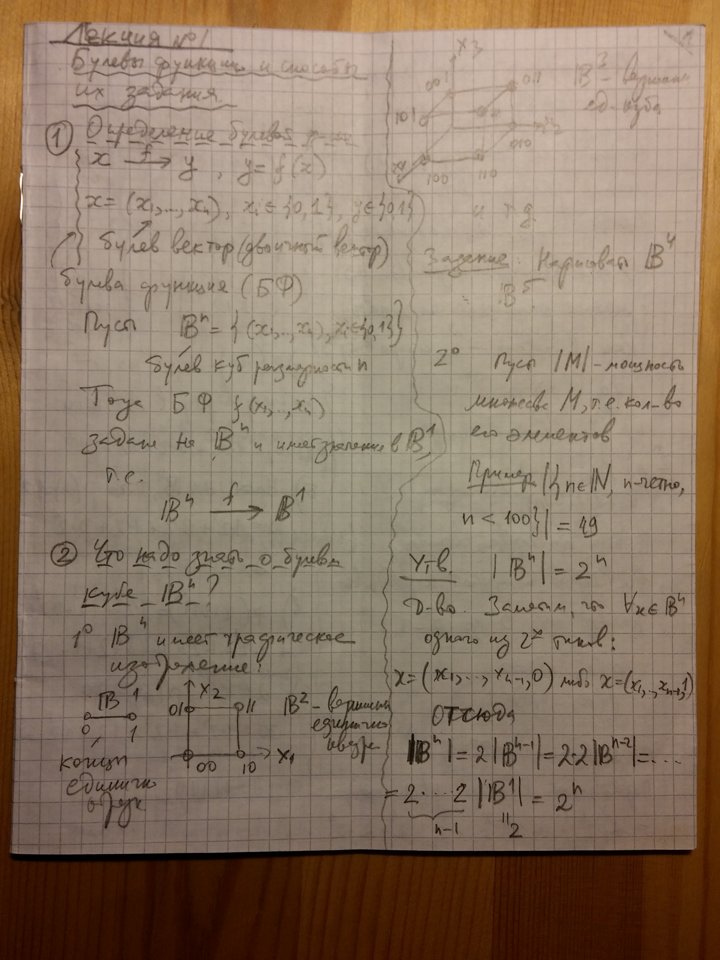 Лекция №1
Булевы функции и способы
их задания
① Определение булевой
x —f→ y , y = f(x)
x = (x₁,...,xₙ), xᵢ∈{0,1}, y∈{0,1}
булев вектор (двоичный вектор)
булева функция (БФ)
Пусть 𝔹ⁿ = {(x₁,..,xₙ), xᵢ∈{0,1}}
булев куб размерности n
Тогда БФ f(x₁,..,xₙ)
задана на 𝔹ⁿ и имеет значения в 𝔹¹,
т.е.
𝔹ⁿ —f→ 𝔹¹
② Что надо знать о булевом
кубе 𝔹ⁿ?
1° 𝔹ⁿ имеет графическое
изображение:
𝔹¹
0 1
концы
единичн
отрезк
x₂
01 11
00 10 x₁
𝔹² - вершины
единичного
квадр.
x₃
001 011
101
010 x₂
x₁ 100 110
𝔹³ - вершины
ед. куба
и т.д.
Задание: Нарисовать 𝔹⁴
𝔹⁵
2° Пусть |M| - мощность
множества M, т.е. кол-во
его элементов
Пример |{n∈ℕ, n-четно,
n < 100}| = 49
Утв. |𝔹ⁿ| = 2ⁿ
Д-во. Заметим, что ∀x∈𝔹ⁿ
одного из 2ˣ типов:
x = (x₁,..,xₙ₋₁,0) либо x = (x₁,..,xₙ₋₁,1)
Отсюда
|𝔹ⁿ| = 2|𝔹ⁿ⁻¹| = 2·2|𝔹ⁿ⁻²| = ....
= 2·...·2 |𝔹¹| = 2ⁿ
n-1 " 2